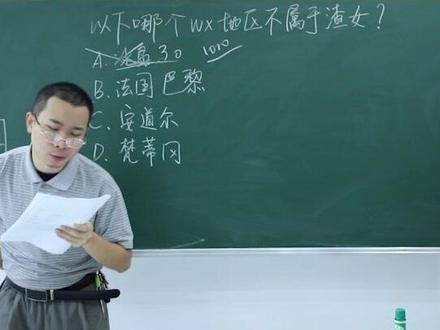 以下哪个wx地区不属于渣女?
A. 冰岛 30 1000
B. 法国 巴黎
C. 安道尔
D. 梵蒂冈